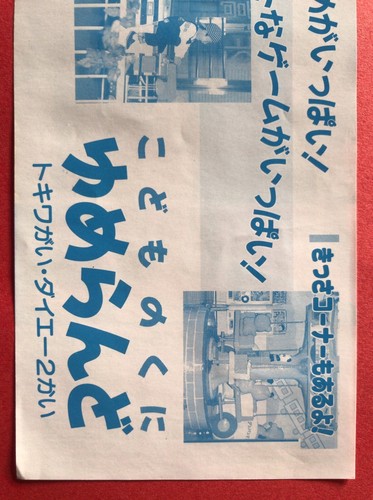 めがいっぱい!
なゲームがいっぱい!
きっさコーナーもあるよ!
こどものくに
ゆめらんど
トキワがい・ダイエー2かい